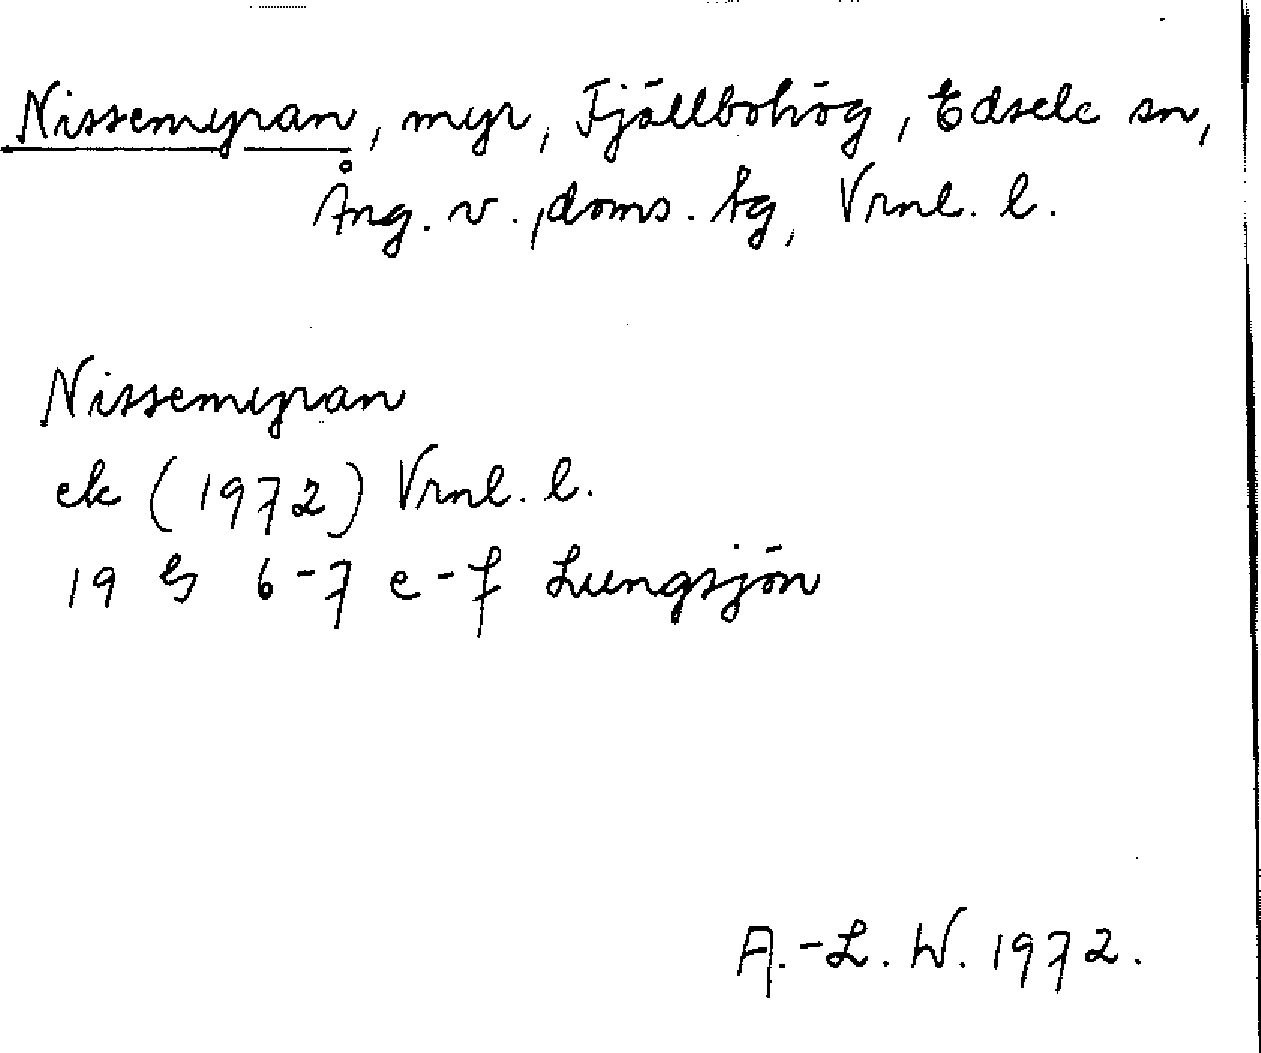 Nissemyran, myr, Fjällbohög, Edsele sn,
Ång. v., doms. tg, Vrnl. l.
Nissemyran
ek (1972) Vrnl. l.
19 G 6-7 e-f Lungsjön
A.-L. W. 1972.